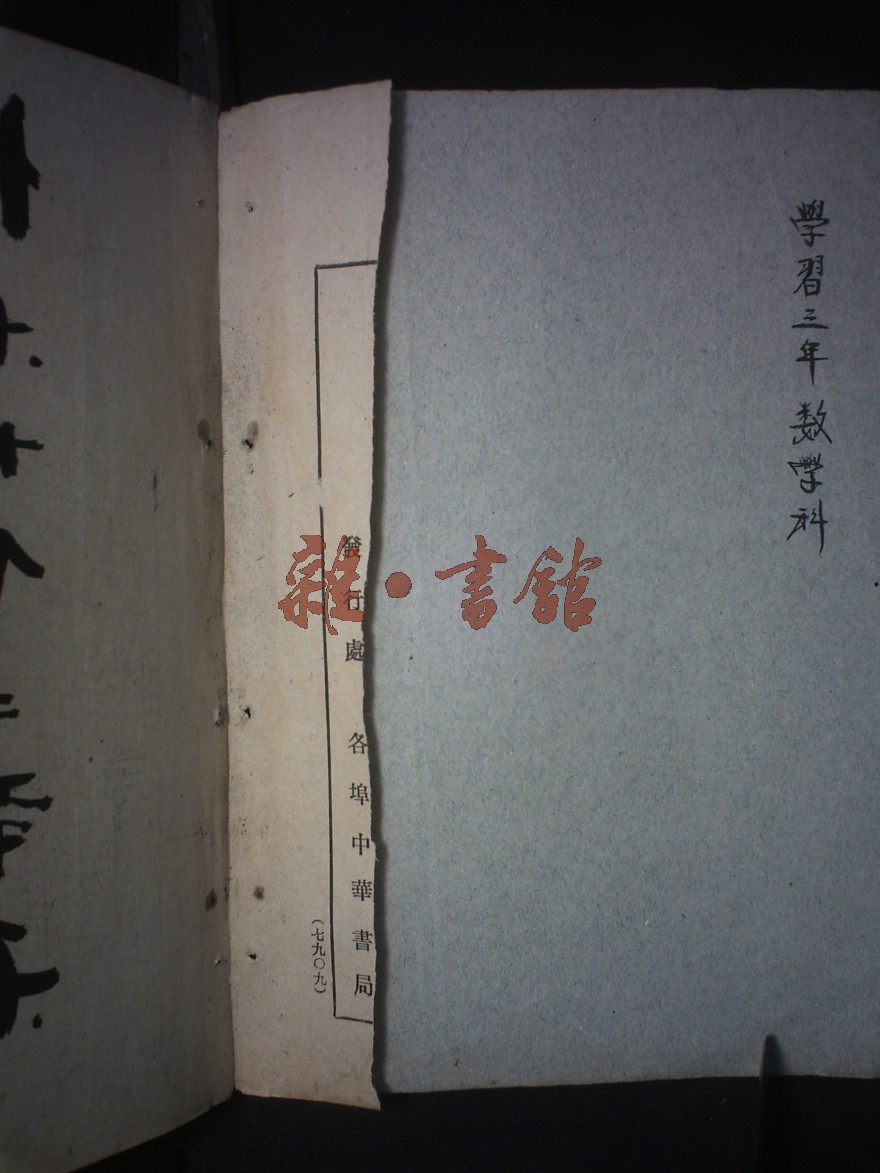 學習三年 数學科
發行處 各埠中華書局
(七九〇九)
雜·書館